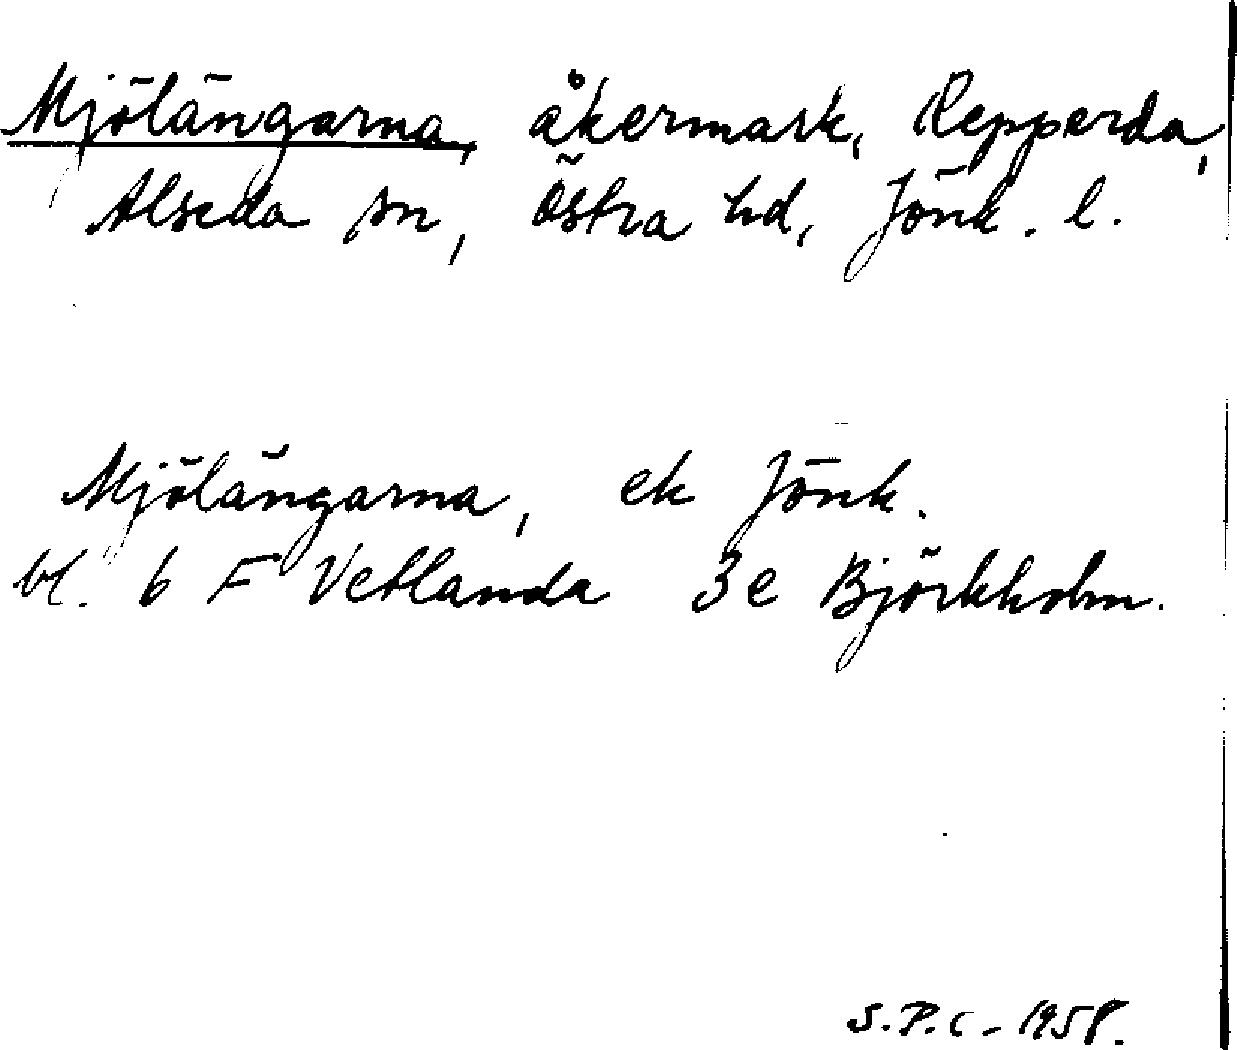 Mjölängarna, åkermark, Repperda,
Alseda sn, Östra hd, Jönk. l.
Mjölängarna, ek Jönk.
bl. 6 F Vetlanda 3e Björkholm.
S.P.C - 1958.